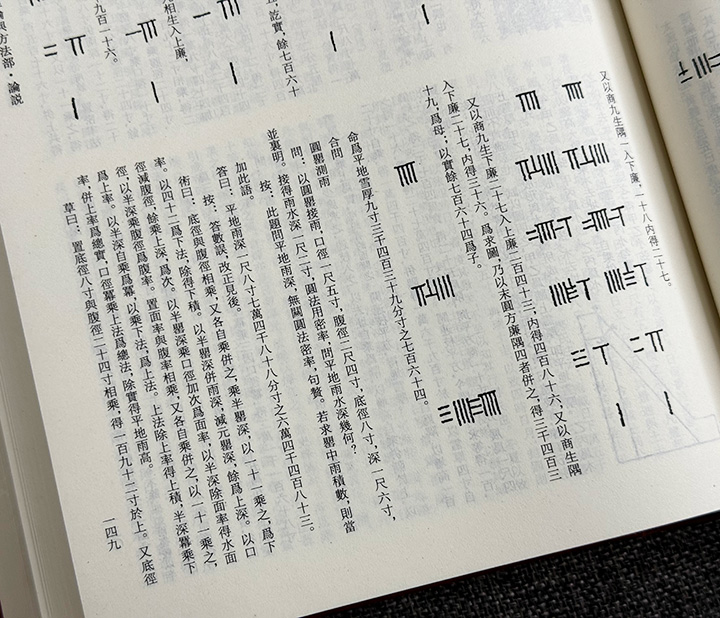 訖實,餘七百六十
相生入上廉,
九百一十六。
與方法部·論説
又以商九生隅一入下廉,一十八内得二十七。
又以商九生下廉二十七入上廉二百四十三,内得四百八十六,又以商生隅
入下廉二十七,内得三十六。爲求圖,乃以末圓方廉隅四者併之,得三千四百三
十九,爲母;以實餘七百六十四爲子。
命爲平地雪厚九寸三千四百三十九分寸之七百六十四。
合問
圓罌測雨
問:以圓罌接雨,口徑一尺五寸,腹徑二尺四寸,底徑八寸,深一尺六寸,
並裏明。接得雨水深一尺二寸,圓法用密率,問平地雨水深幾何?
按,此題問平地雨深,無關圓法密率,句贅。若求罌中雨積數,則當
加此語。
答曰:平地雨深一尺八寸七萬四千八十八分寸之六萬四千四百八十三。
按,答數誤,改正見後。
術曰:底徑與腹徑相乘,又各自乘併之,乘半罌深,以一十一乘之,爲下
率。以四十二爲下法,除得下積。以半罌深併雨深,減元罌深,餘爲上深。以口
徑減腹徑,餘乘上深,爲次。以半罌深乘口徑加次爲面率,以半深除面率得水面
徑,以半深乘腹徑爲腹率。置面率與腹率相乘,又各自乘併之,以一十一乘之,
爲上率。以半深自乘爲冪,以乘下法,爲上法。上法除上率得上積,半深冪乘下
率,併上率爲總實,口徑冪乘上法爲總法,除實得平地雨高。
草曰:置底徑八寸與腹徑二十四寸相乘,得一百九十二寸於上。又底徑
一四九